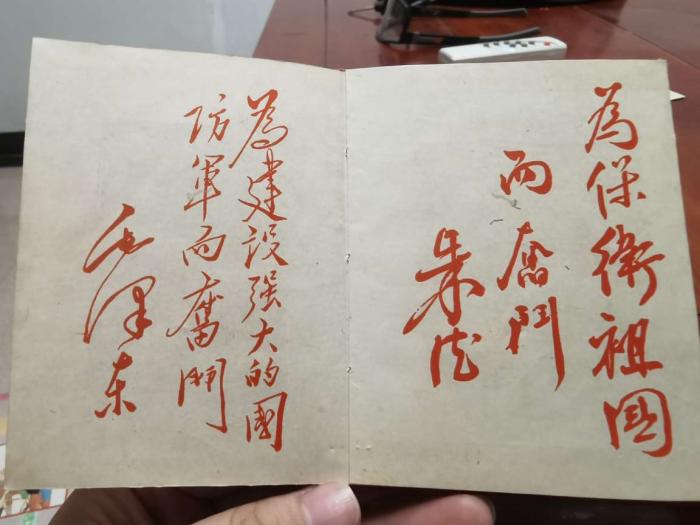 為保衛祖國
而奮鬥
朱德
為建設强大的國
防軍而奮鬥
毛澤东